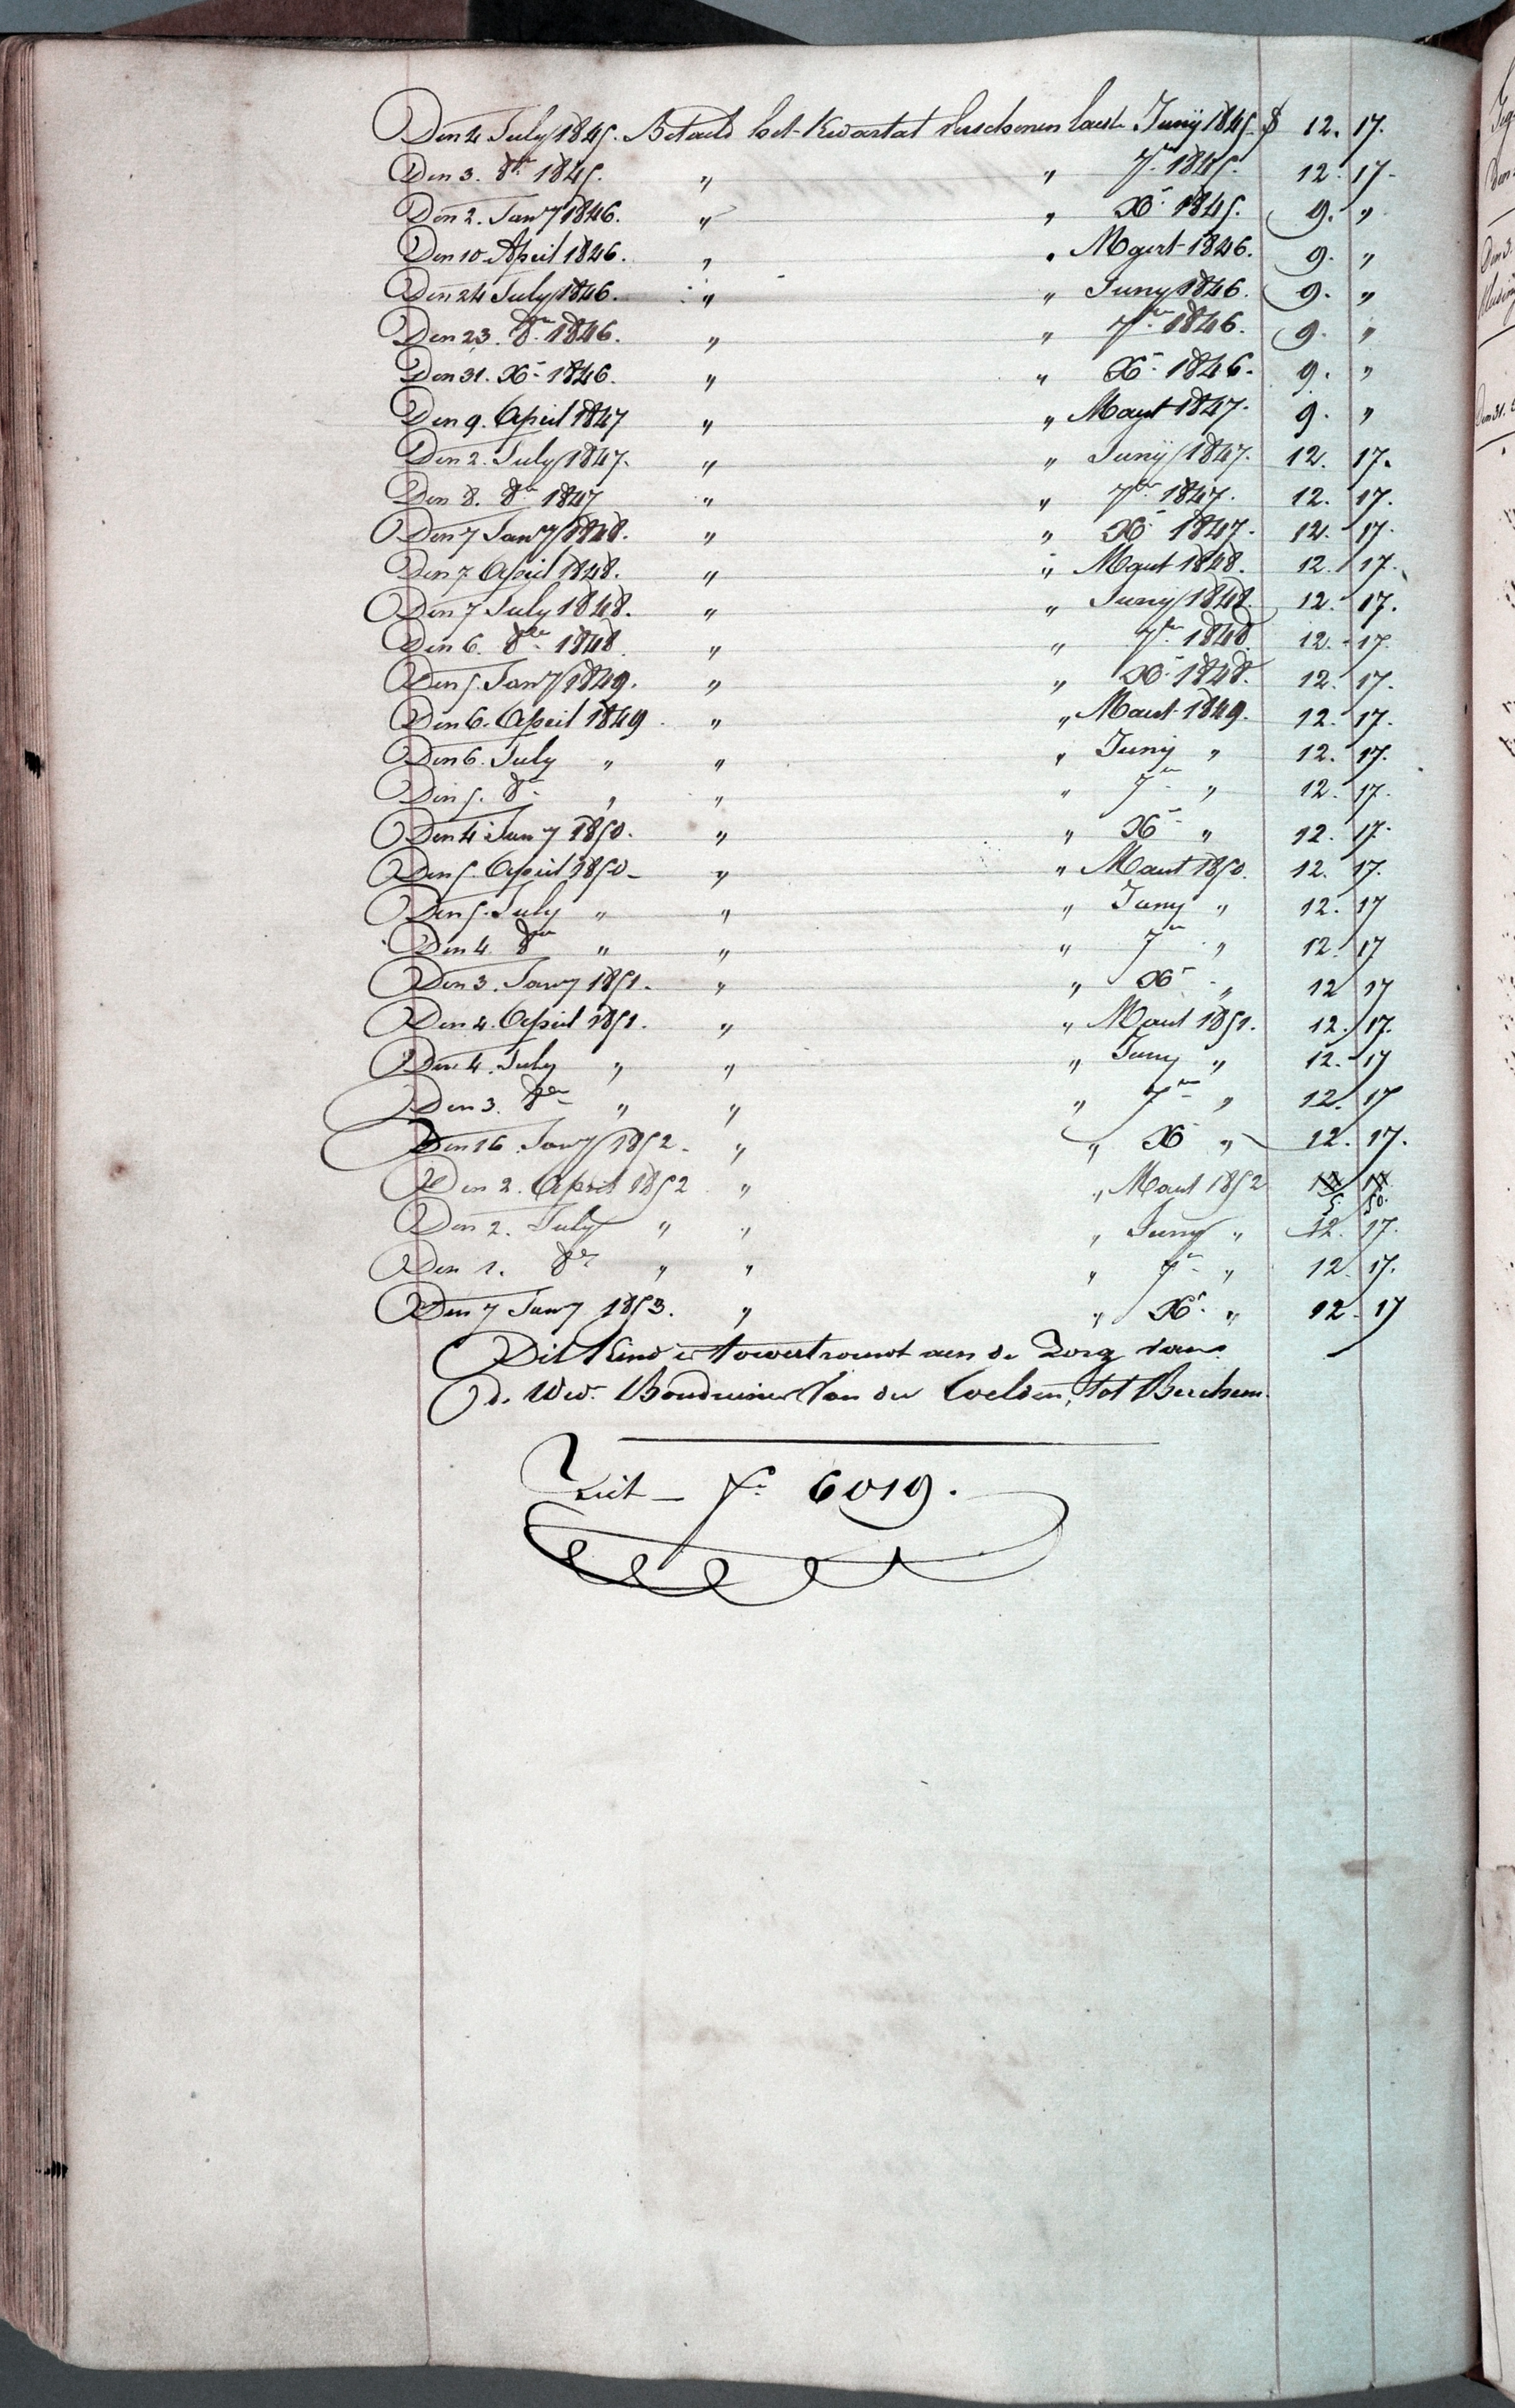 Den 4 July 1845. Betaeld het Kwartal verschenen laest Junÿ 1845. 12. 17.
Den 3. 8br 1845. " " 7r 1845. 12. 17.
Den 2. Janry 1846. " " Xr 1845. 9. "
Den 10 April 1846. " " Maert 1846. 9. "
Den 24 July 1846. " " Juny 1846. 9. "
Den 23. 8r 1846. " " 7br 1846. 9. "
Den 31. Xr 1846. " " Xr 1846. 9. "
Den 9. April 1847 " " Maert 1847. 9. "
Den 2. July 1847. " " Junÿ 1847. 12. 17.
Den 8. 8br 1847 " " 7br 1847. 12. 17.
Den 7 Janry 1848. " " Xr 1847. 12. 17.
Den 7 April 1848. " " Maert 1848. 12. 17.
Den 7 July 1848. " " Juny 1848. 12. 17.
Den 6. 8br 1848. " " 7br 1848 12. 17.
Den 5. Janry 1849. " " Xr 1848. 12. 17.
Den 6. April 1849. " " Maert 1849. 12. 17.
Den 6. July " " " Junÿ " 12. 17.
Den 5. 8r " " " 7r " 12. 17.
Den 4 Janry 1850. " " Xr " 12. 17.
Den 5. April 1850 " " Maert 1850. 12. 17.
Den 5. July " " " Juny " 12. 17
Den 4. 8br " " " 7r " 12. 17
Den 3. Janry 1851. " " Xr " 12 17
Den 4. April 1851. " " Maert 1851. 12. 17.
Den 4. July " " " Juny " 12. 17
Den 3. 8br " " " 7r " 12. 17
Den 16 Janry 1852. " " Xr " 12. 17.
Den 2. April 1852 " " Maert 1852 12 17
5. 50.
Den 2. July " " " Juny " 12. 17.
Den 1. 8br " " " 7r " 12. 17.
Den 7 Janry 1853. " " Xr " 12. 17
Dit Kind is toevertrouwt aen de Zorg van
de Wwe Boudewine Van der Coelden, tot Berchem.
Ziet fo 6019.